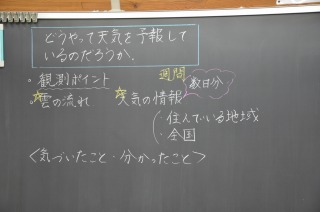 どうやって天気を予報して
いるのだろうか。
。観測ポイント
週間
数日分
。雲の流れ
天気の情報
・住んでいる地域
・全国
＜気づいたこと・分かったこと＞